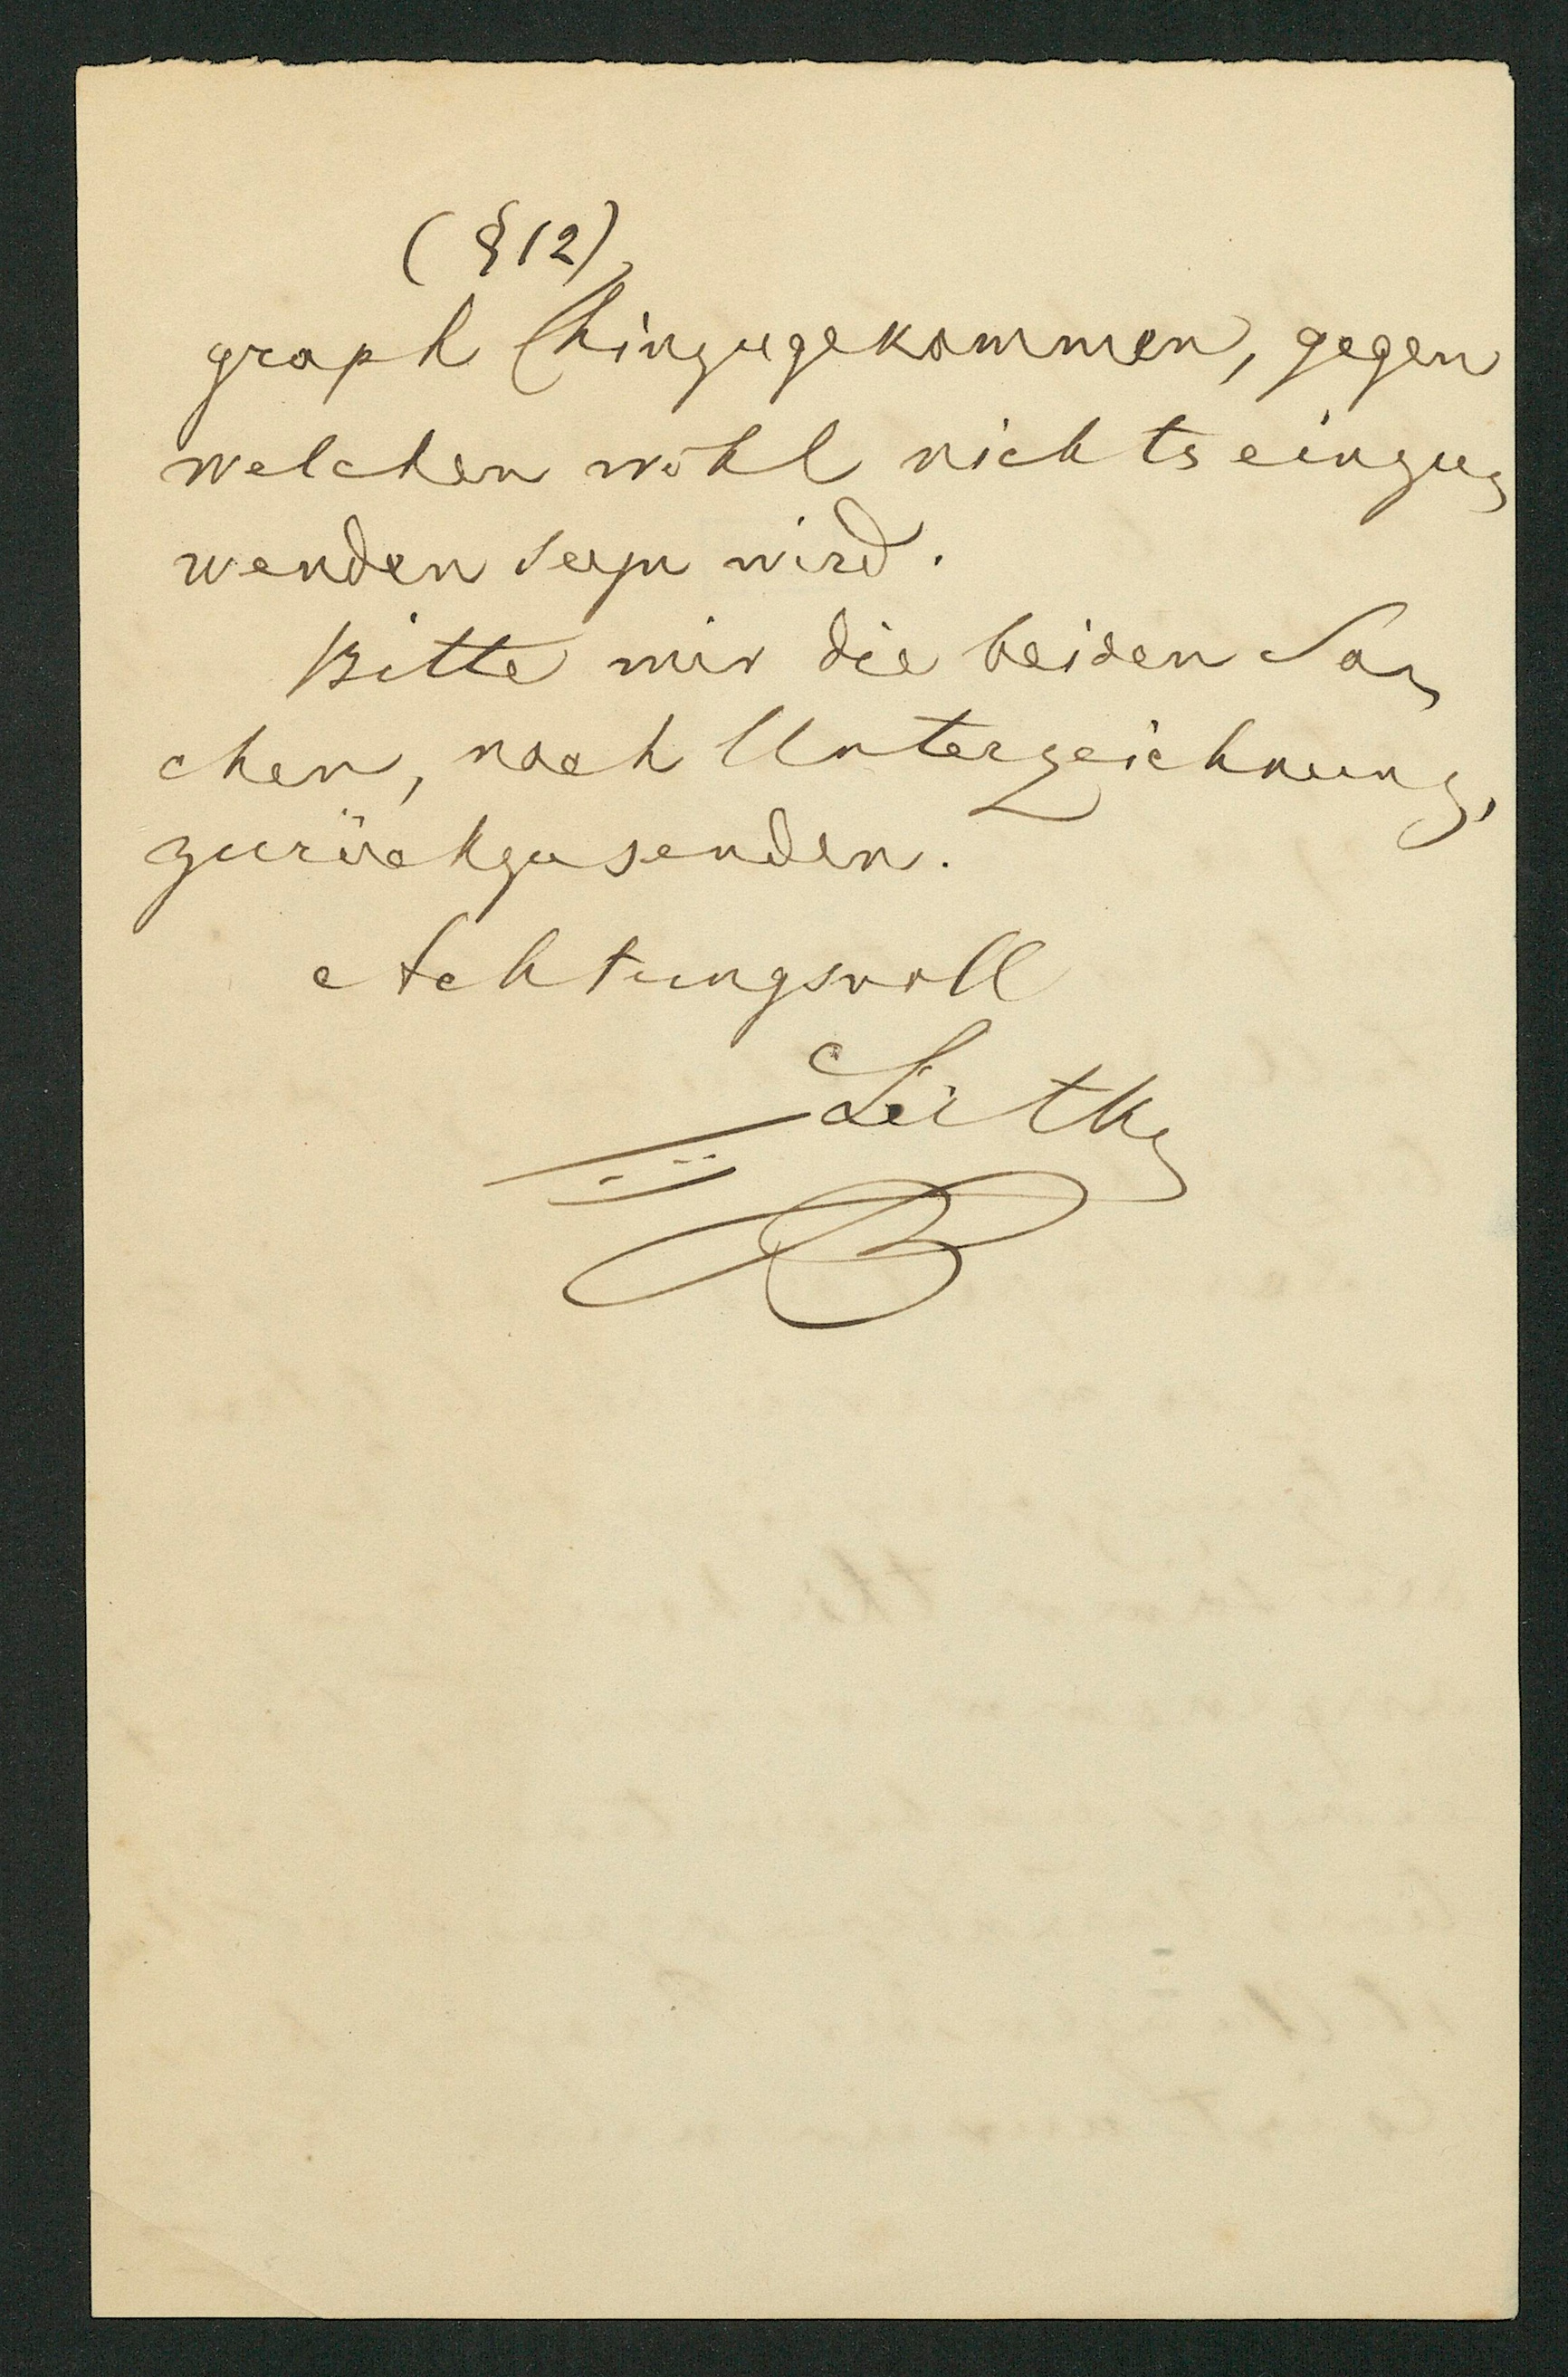 (§ 12)
graph hinzugekommen, gegen
welchen wohl nichts einzu-
wenden seyn wird.
Bitte mir die beiden Sa-
chen, nach Unterzeichnung,
zurückzusenden.
Achtungsvoll